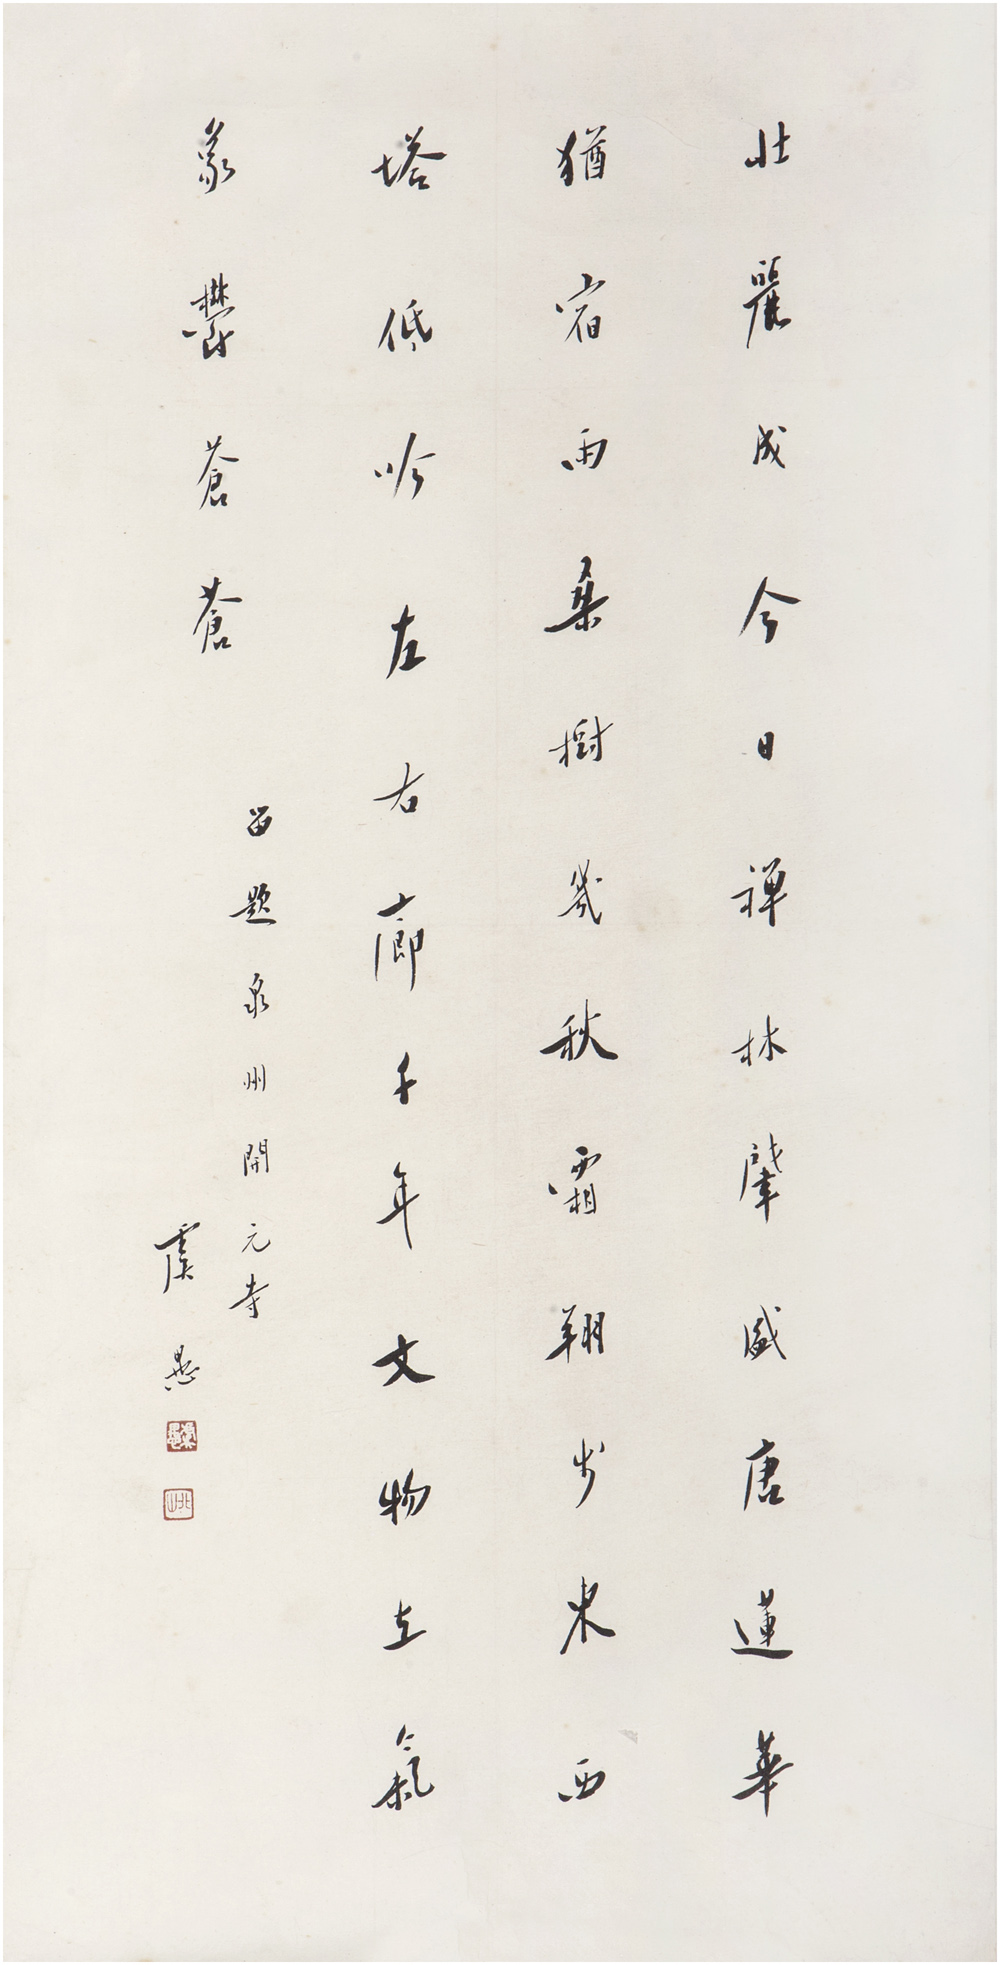 壯麗成今日禪林肇盛唐蓮華
猶宿雨桑樹幾秋霜翔步東西
塔低吟左右廊千年文物在氣
象鬱蒼蒼
留題泉州開元寺
虞愚
虞愚
北山